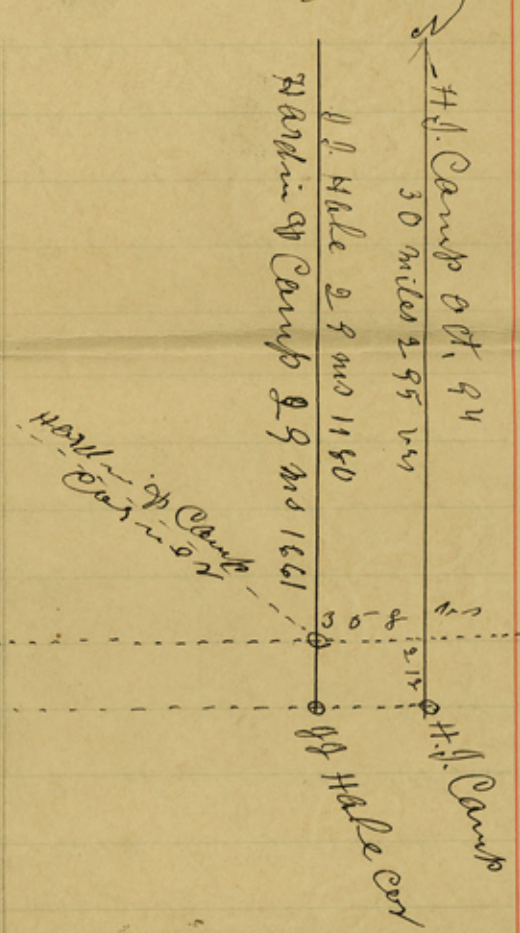 H.J. Camp Oct, 94
30 miles 295 vrs
J J. Hale 29 ms 1180
Hardin & Camp 29 ms 1661
Hardin & Camp
Corner
358 vrs
212
H.J. Camp
JJ Hale cor